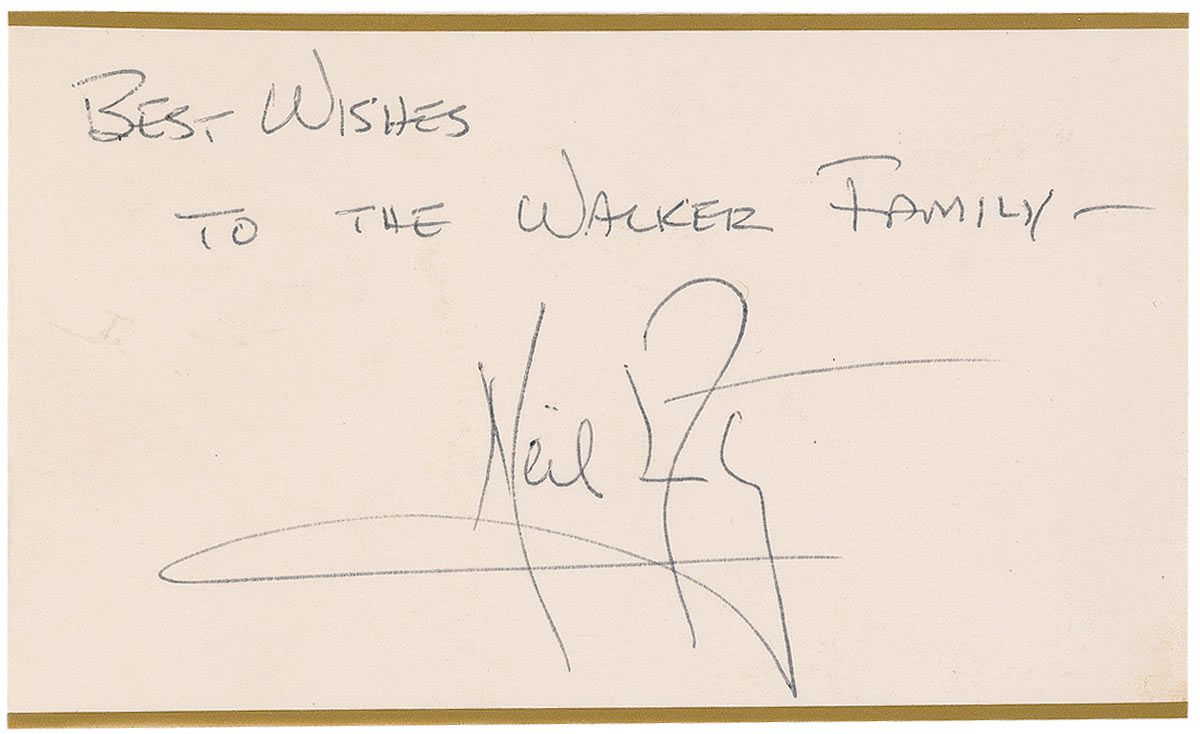 Best Wishes
to the Walker Family —
Neil